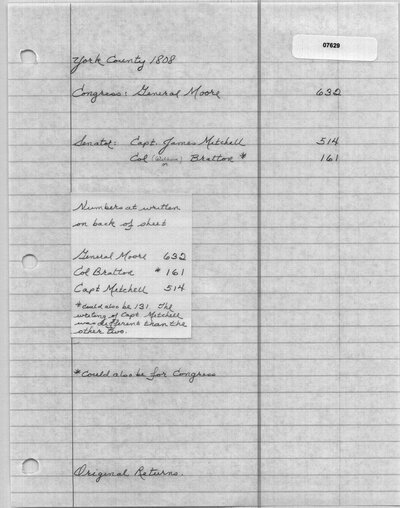 07629
York County 1808
Congress: General Moore 632
Senator: Capt. James Mitchell 514
Col (William) Bratton * 161
Numbers at written
on back of sheet
General Moore 632
Col Bratton * 161
Capt Mitchell 514
*could also be 131. The
writing of Capt Mitchell
was different than the
other two.
*Could also be for Congress
Original Returns.